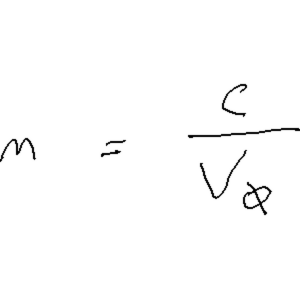 n = c / V_φ